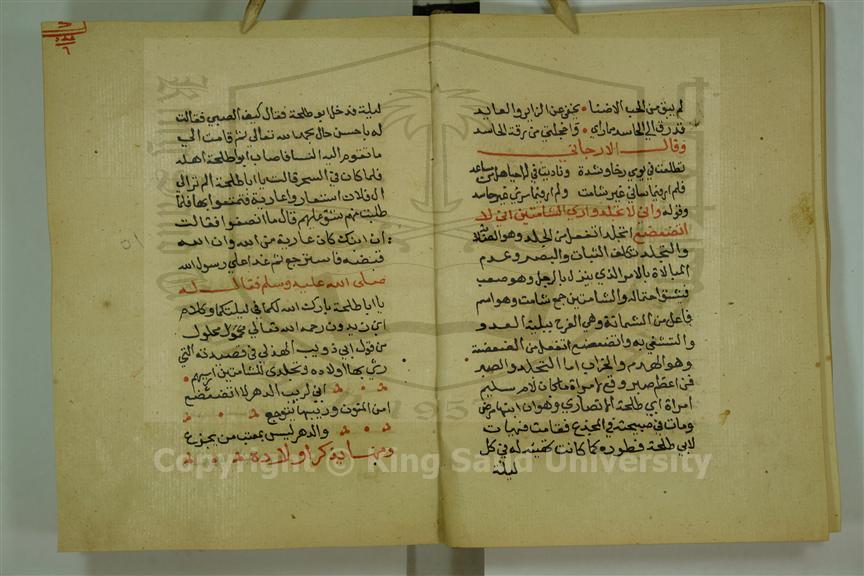 لم يبق من الحب الاضنا • يخفى عن الزاير والعايد
قدرق لي الحاسد مماراي • واخجلتي من رقة الحاسد
وقال الارجاني
تطلعت في يومي رخاء وشدة • وناديت في الاحياء هل من مساعد
فلم ار فيما ساءني غير شامت • ولم ار فيما سرني غير حاسد
وقوله واني لا تجلد واري الشامتين اني لا
اتضعضع اتجلد اتفعل من الجلد وهو الصلابة
والتجلد تكلف الثبات والبصر وعدم
المبلاة بالامر الذي ينزل بالرجل وهو صعب
فيشق احتماله والشامتين جمع شامت وهو اسم
فاعل من الشماتة وهي الفرح ببلية العدو
والتشفي به واتضعضع اتفعل من الضعضعة
وهو الهدم والخراب اما التجلد والصبر
فن اعظم صبر وقع لامراة ماكان لام سليم
امراة ابي طلحة الانصاري وهو ان ابنها مرض
ومات في صبيحته في المخدع فقامت فهيات
لابي طلحة فطوره كما كانت تهيئه له في كل
ليلة
ليلة فدخل ابو طلحة فقال كيف الصبي فقالت
له باحسن حال بحمد الله تعالى ثم قامت الي
ما تقوم اليه النسا فاصاب ابو طلحة اهله
فلما كان في السحر قالت يا ابا طلحة الم ترالي
ال فلان استعاروا عارية فتمتعوا بها فلما
طلبت منهم شق عليهم قال ما انصفوا فقالت
ان ابنك كان عارية من الله وان الله
قبضه فاسترجع ثم غدا علي رسول الله
صلى الله عليه وسلم فقال له
يا ابا طلحة بارك الله لكما في ليلتكما وكلام
ابن زيدون رحمه الله تعالي محلول
من قول ابي ذويب الهذلي في قصيدته التي
رثي بها اولاده وتجلدي للشامتين اريهم •
اني لريب الدهر لا اتضعضع
امن المنون وريبها تتوجع
والدهر ليس بمعتب من يجزع
ومنها يذكر اولاده
Copyright © King Saud University